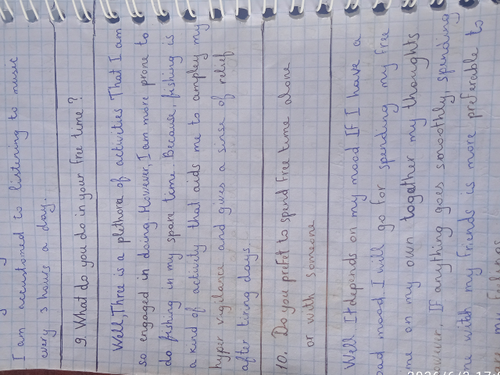 I am accustomed to listening to music
every 3 hours a day.
9. What do you do in your free time?
Well, Thre is a plethora of activities That I am
so engaged in doing However, I am more prone to
do fishing in my spare time. Because, fishing is
a kind of activity that aids me to amploy my
hyper vigilance and gives a sense of relief
after tiring days.
10. Do you prefet to spend free time alone
or with someone
Well It depends on my mood If I have a
bad mood I will go for spending my free
me on my own together my thoughts
wever, If anything goes smoothly, spending
me with my friends is more preferable to
my